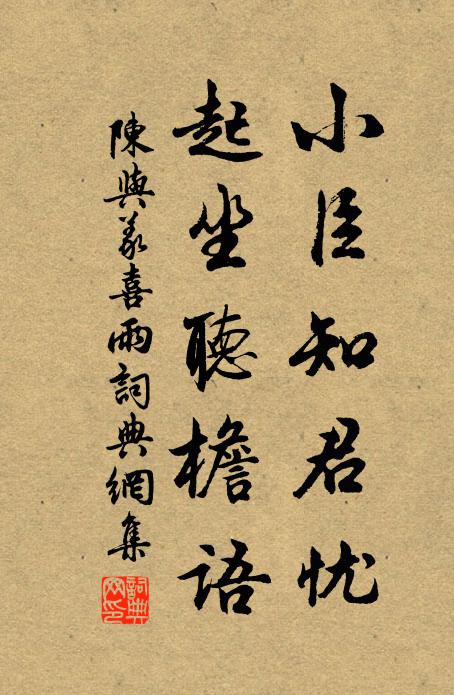 小臣知君忧
起坐聽檐語
陳與義喜雨詞典網集
詞典網印